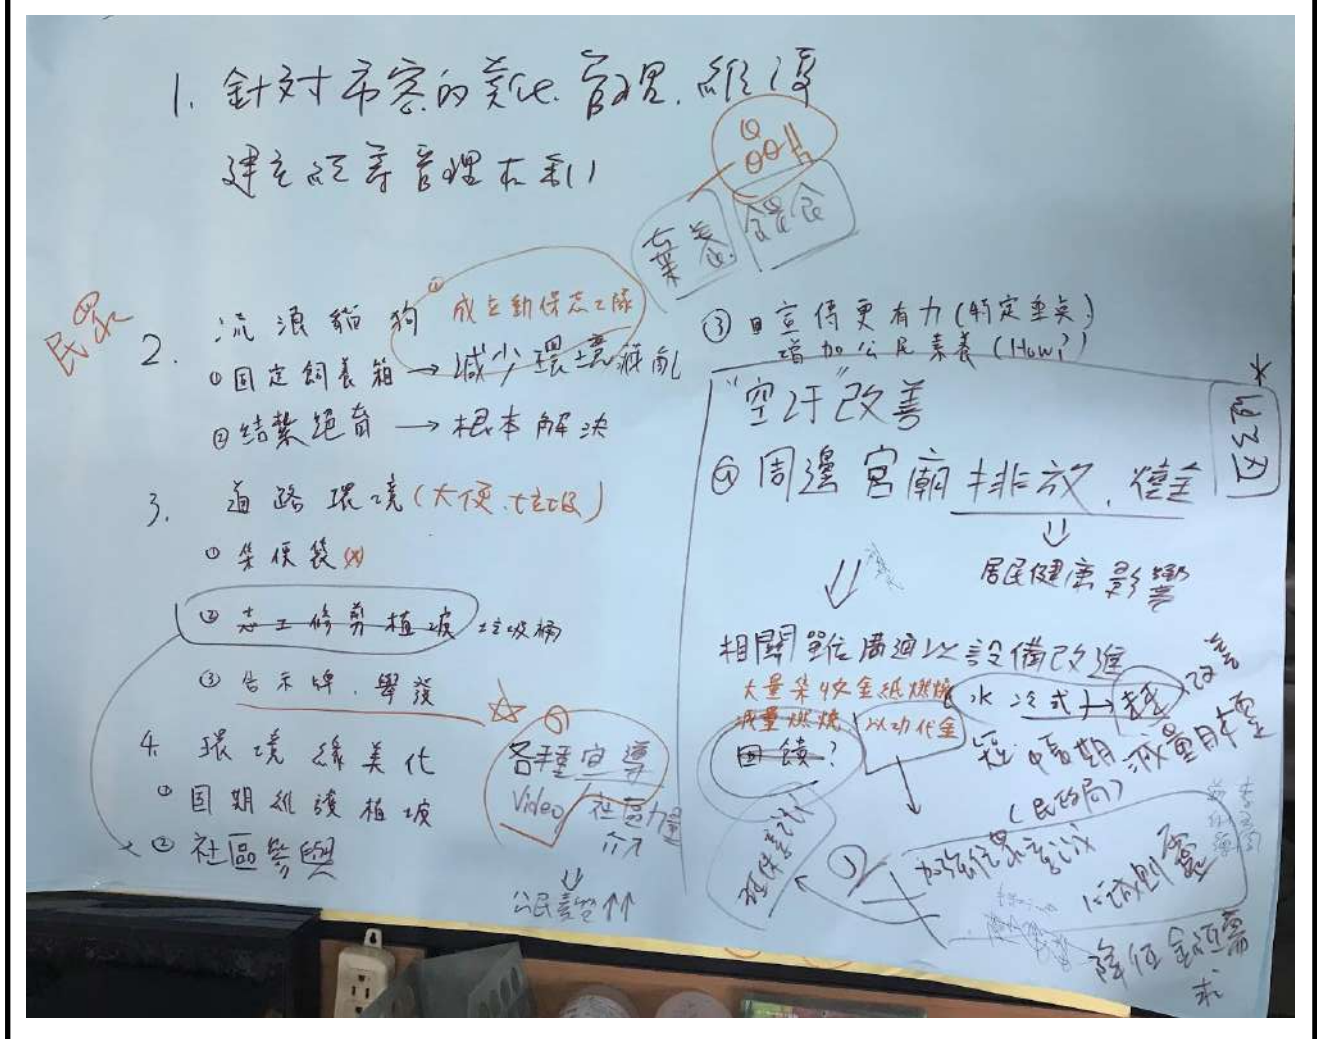 1. 針對市容的美化.管理.維護
建立統籌管理太
棄養
餵食
2. 流浪貓狗
① 成立動保志工隊
①固定飼養箱→減少環境雜亂
②結紮絕育→根本解決
3. 道路環境(大便.垃圾)
① 集便袋(x)
② 志工修剪植坡 垃圾桶
③ 告示牌.舉發
4. 環境綠美化
① 固期維護植坡
② 社區參與
各種宣導
Video
社區力量
介入
⇓
公民素質↑↑
③ 宣傳更有力(特定重點)
增加公民素養(How?)
"空汙"改善
周邊宮廟排放.
⇓
居民健康影響
相關單位溝通以設備改進
大量集收金紙燃燒
減量燃燒.以功代金
水冷式→
改善
回饋?
短中長期減量財
(民政局)
降低金紙需求